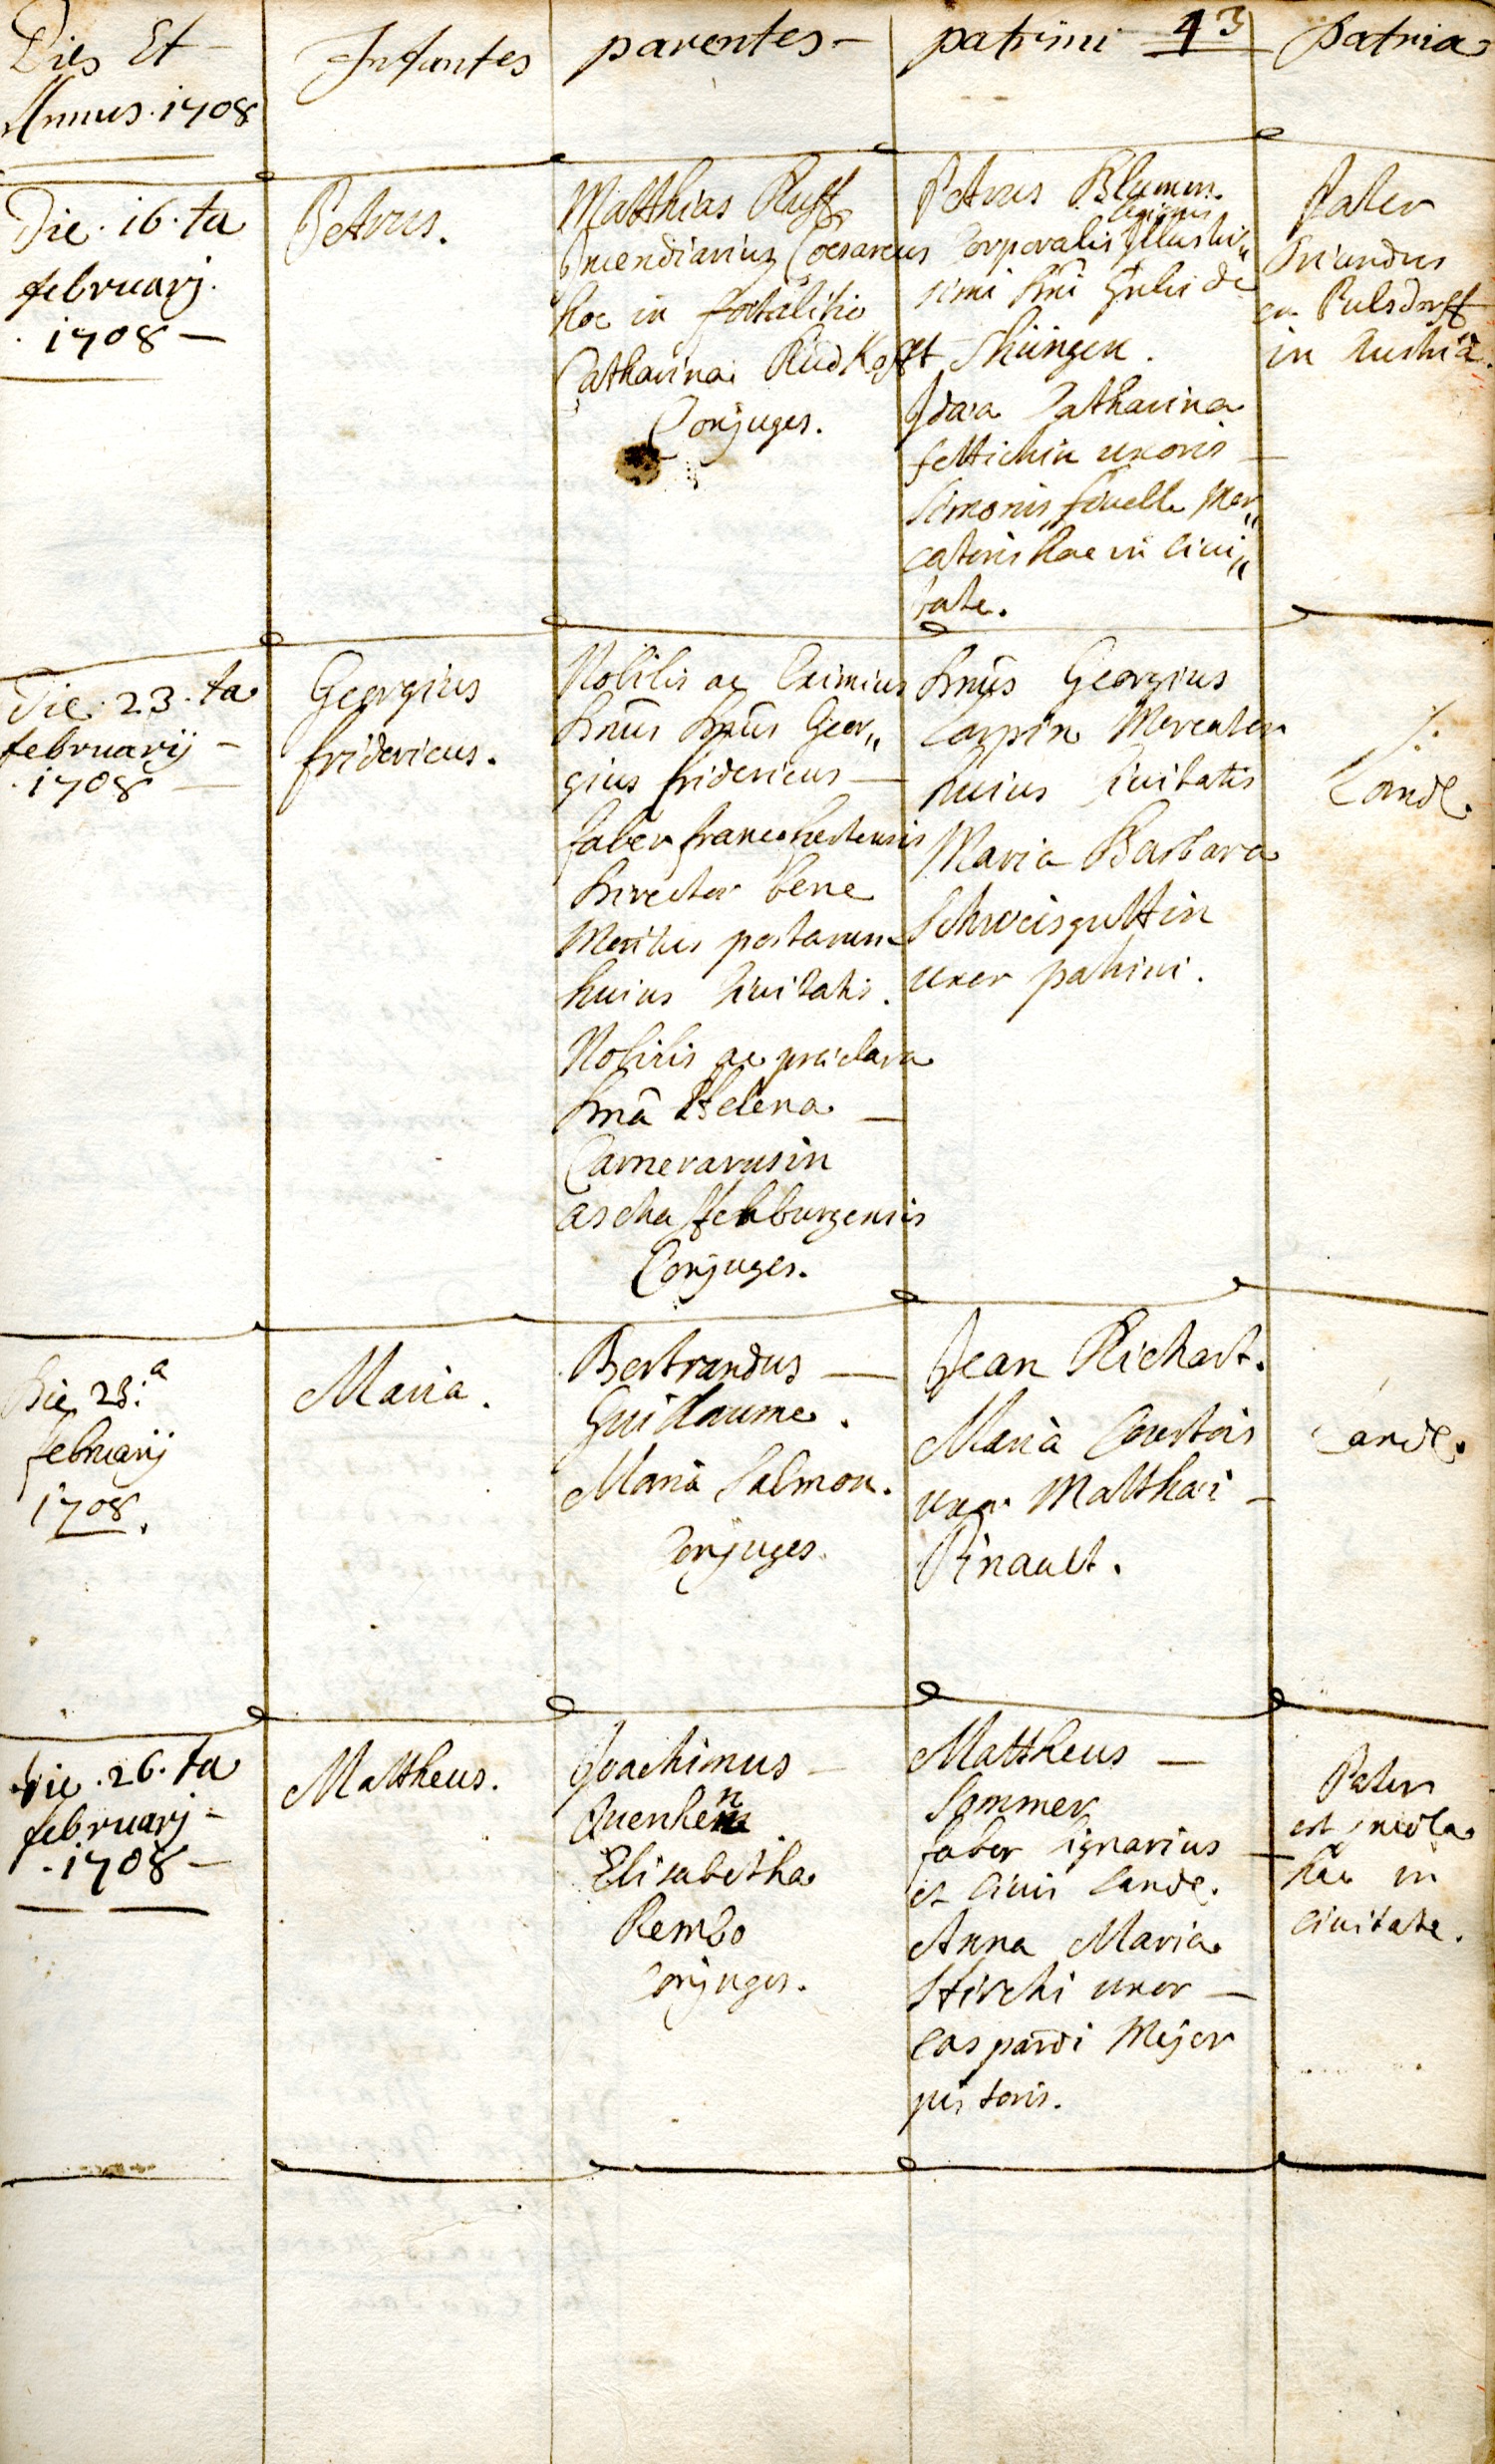 Dies Et
Annus. 1708
Infantes
parentes
patrini
43
patria
Die. 16. ta
februarj.
1708
Petrus.
Matthias Ruff
Incendiarius Caesareus
hoc in fortalitio
Catharina Riedkoff
Conjuges.
Petrus Blumen.
Corporalis Illustris„
simi Dni
et Thüngen.
Idaea Catharina
fettichin uxoris
Simonis finelle Mer„
catoris hac in civi„
tate.
Pater
Oriundus
ex Pulsdorff
in Austria.
Die. 23. ta
februarij
1708
Georgius
fridericus.
Nobilis ac Eximius
Dnus Dnus Geor„
gius fridericus
faber francofurtensis
Director bene
Meritus postarum
huius Civitatis.
Nobilis ac praeclara
Dna Helena
Camerarysin
aschaffenburgensis
Conjuges.
Dnus Georgius
Carpin Mercator
huius Civitatis
Maria Barbara
Schweisguttin
uxor patrini.
Land.
Die 23.a
februarij
1708.
Maria.
Bertrandus
Guillaume.
Maria Salmon.
Conjuges.
Jean Richart.
Maria Courtois
uxor Matthaei
Pinault.
Land.
Die. 26. ta
februarj
1708
Mattheus.
Joachimus
Quenhen
Elisabetha
Rembo
Conjuges.
Mattheus
Sommer
faber lignarius
et Civis Land.
Anna Maria
Stirchi uxor
Caspardi Meyer
pistoris.
Pater
est incola
hac in
civitate.